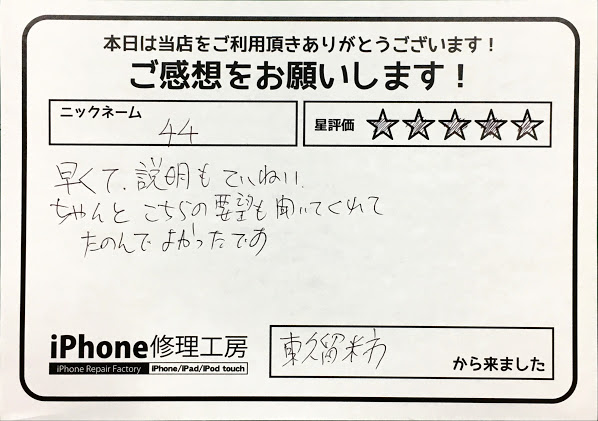 本日は当店をご利用頂きありがとうございます！
ご感想をお願いします！
ニックネーム
44
星評価
早くて、説明もていねい、
ちゃんとこちらの要望も聞いてくれて
たのんでよかったです
iPhone修理工房
iPhone Repair Factory iPhone/iPad/iPod touch
東久留米市
から来ました